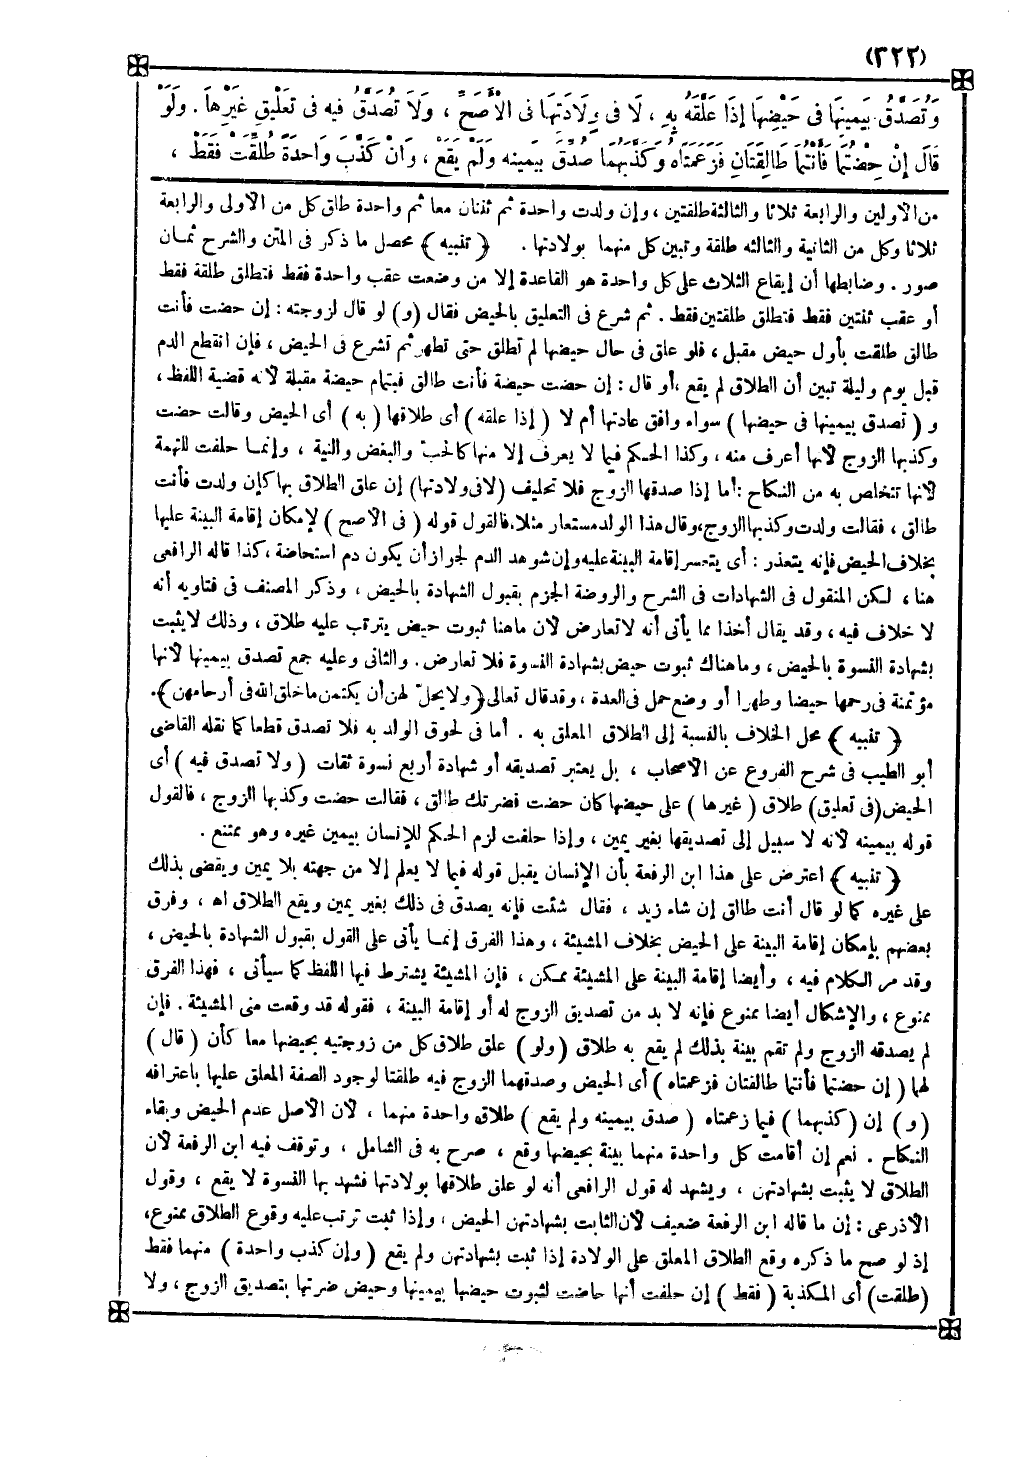 (٣٢٢)
وَتُصَدَّقُ بِيَمِينِهَا فِى حَيْضِهَا إِذَا عَلَّقَهُ بِهِ ، لَا فِى وِلَادَتِهَا فِى الْأَصَحِّ ، وَلَا تُصَدَّقُ فيه فى تَعْلِيقِ غَيْرِهَا . وَلَوْ
قَالَ إِنْ حِضْتُمَا فَأَنْتُمَا طَالِقَتَانِ فَزَعَمَتَاهُ وَكَذَّبَهُمَا صُدِّقَ بِيَمِينه وَلَمْ يَقَعْ ، وَإنْ كَذَّبَ وَاحِدَةً طُلِّقَتْ فَقَطْ ،
من الأولين والرابعة ثلاثا والثالثة طلقتين ، وإن ولدت واحدة ثم ثنتان معا ثم واحدة طلق كل من الأولى والرابعة
ثلاثا وكل من الثانية والثالثه طلقة وتبين كل منهما بولادتها . ﴿ تنبيه ﴾ محصل ما ذكر فى المتن والشرح ثمان
صور . وضابطها أن إيقاع الثلاث على كل واحدة هو القاعدة إلا من وضعت عقب واحدة فقط فتطلق طلقة فقط
أو عقب ثنتين فقط فتطلق طلقتين فقط . ثم شرع فى التعليق بالحيض فقال (و) لو قال لزوجته : إن حضت فأنت
طالق طلقت بأول حيض مقبل ، فلو علق فى حال حيضها لم تطلق حتى تطهر ثم تشرع فى الحيض ، فإن انقطع الدم
قبل يوم وليلة تبين أن الطلاق لم يقع ، أو قال : إن حضت حيضة فأنت طالق فبتمام حيضة مقبلة لأنه قضية اللفظ ،
و ( تصدق بيمينها فى حيضها ) سواء وافق عادتها أم لا ( إذا علقه ) أى طلاقها ( به ) أى الحيض وقالت حضت
وكذبها الزوج لأنها أعرف منه ، وكذا الحكم فيما لا يعرف إلا منها كالحبّ والبغض والنية ، وإنمـا حلفت للتهمة
لأنها تتخلص به من النكاح : أما إذا صدقها الزوج فلا تحليف (لا فى ولادتها) إن علق الطلاق بها كإن ولدت فأنت
طالق ، فقالت ولدت وكذبها الزوج ، وقال هذا الولد مستعار مثلا، فالقول قوله ( فى الأصح ) لإمكان إقامة البينة عليها
بخلاف الحيض فإنه يتعذر : أى يتعسر إقامة البينة عليه وإن شوهد الدم لجواز أن يكون دم استحاضة ، كذا قاله الرافعى
هنا ، لكن المنقول فى الشهادات فى الشرح والروضة الجزم بقبول الشهادة بالحيض ، وذكر المصنف فى فتاويه أنه
لا خلاف فيه ، وقد يقال أخذا مما يأتى أنه لا تعارض لأن ماهنا ثبوت حيض يترتب عليه طلاق ، وذلك لا يثبت
بشهادة النسوة بالحيض ، وماهناك ثبوت حيض بشهادة النسوة فلا تعارض . والثانى وعليه جمع تصدق بيمينها لأنها
مؤتمنة فى رحمها حيضا وطهرا أو وضع حمل فى العدة ، وقد قال تعالى ﴿ ولا يحلّ لهن أن يكتمن ما خلق الله فى أرحامهن ﴾.
﴿ تنبيه ﴾ محل الخلاف بالنسبة إلى الطلاق المعلق به . أما فى لحوق الولد به فلا تصدق قطعا كما نقله القاضى
أبو الطيب فى شرح الفروع عن الأصحاب ، بل يعتبر تصديقه أو شهادة أربع نسوة ثقات ( ولا تصدق فيه ) أى
الحيض (فى تعليق) طلاق ( غيرها ) على حيضها كان حضت فضرتك طالق ، فقالت حضت وكذبها الزوج ، فالقول
قوله بيمينه لأنه لا سبيل إلى تصديقها بغير يمين ، وإذا حلفت لزم الحكم للإنسان بيمين غيره وهو ممتنع .
﴿ تنبيه ﴾ اعترض على هذا ابن الرفعة بأن الإنسان يقبل قوله فيما لا يعلم إلا من جهته بلا يمين ويقضى بذلك
على غيره كما لو قال أنت طالق إن شاء زيد ، فقال شئت فإنه يصدق فى ذلك بغير يمين ويقع الطلاق اه ، وفرق
بعضهم بإمكان إقامة البينة على الحيض بخلاف المشيئة ، وهذا الفرق إنمـا يأتى على القول بقبول الشهادة بالحيض ،
وقد مر الكلام فيه ، وأيضا إقامة البينة على المشيئة ممكن ، فإن المشيئة يشترط فيها اللفظ كما سيأتى ، فهذا الفرق
ممنوع ، والإشكال أيضا ممنوع فإنه لا بد من تصديق الزوج له أو إقامة البينة ، فقوله قد وقعت منى المشيئة . فإن
لم يصدقه الزوج ولم تقم بينة بذلك لم يقع به طلاق ( ولو ) علق طلاق كل من زوجتيه بحيضها معا كأن ( قال )
لهما ( إن حضتما فأنتما طالقتان فزعمتاه ) أى الحيض وصدقهما الزوج فيه طلقتا لوجود الصفة المعلق عليها باعترافه
( و ) إن ( كذبهما ) فيما زعمتاه ( صدق بيمينه ولم يقع ) طلاق واحدة منهما ، لأن الأصل عدم الحيض وبقاء
النكاح . نعم إن أقامت كل واحدة منهما بينة بحيضها وقع ، صرح به فى الشامل ، وتوقف فيه ابن الرفعة لأن
الطلاق لا يثبت بشهادتهن ، ويشهد له قول الرافعى أنه لو علق طلاقها بولادتها فشهد بها النسوة لا يقع ، وقول
الأذرعى : إن ما قاله ابن الرفعة ضعيف لأن الثابت بشهادتهن الحيض ، وإذا ثبت ترتب عليه وقوع الطلاق ممنوع،
إذ لو صح ما ذكره وقع الطلاق المعلق على الولادة إذا ثبت بشهادتهن ولم يقع ( وإن كذب واحدة ) منهما فقط
(طلقت) أى المكذبة ( فقط ) إن حلفت أنها حاضت لثبوت حيضها بيمينها وحيض ضرتها بتصديق الزوج ، ولا